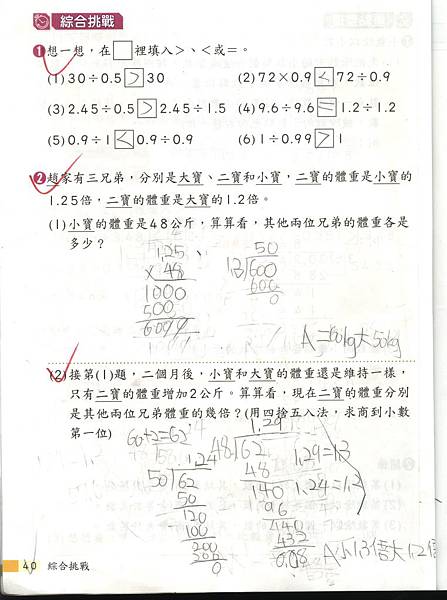 綜合挑戰
❶想一想，在□裡填入>、<或=。
(1) 30÷0.5 > 30 (2) 72×0.9 < 72÷0.9
(3) 2.45÷0.5 > 2.45÷1.5 (4) 9.6÷9.6 = 1.2÷1.2
(5) 0.9÷1 < 0.9÷0.9 (6) 1÷0.99 > 1
❷趙家有三兄弟，分別是大寶、二寶和小寶，二寶的體重是小寶的
1.25倍，二寶的體重是大寶的1.2倍。
(1)小寶的體重是48公斤，算算看，其他兩位兄弟的體重各是
多少？
1.25
×48
1000
500
6000
50
12)600
600
0
A=60kg大50kg
(2)接第(1)題，二個月後，小寶和大寶的體重還是維持一樣，
只有二寶的體重增加2公斤。算算看，現在二寶的體重分別
是其他兩位兄弟體重的幾倍？(用四捨五入法，求商到小數
第一位)
60+2=62
1.24
50)62
50
120
100
200
200
0
1.29
48)62
48
140
96
440
432
0.08
1.29=1.3
1.24=1.2
A小1.3倍大1.2倍
40 綜合挑戰